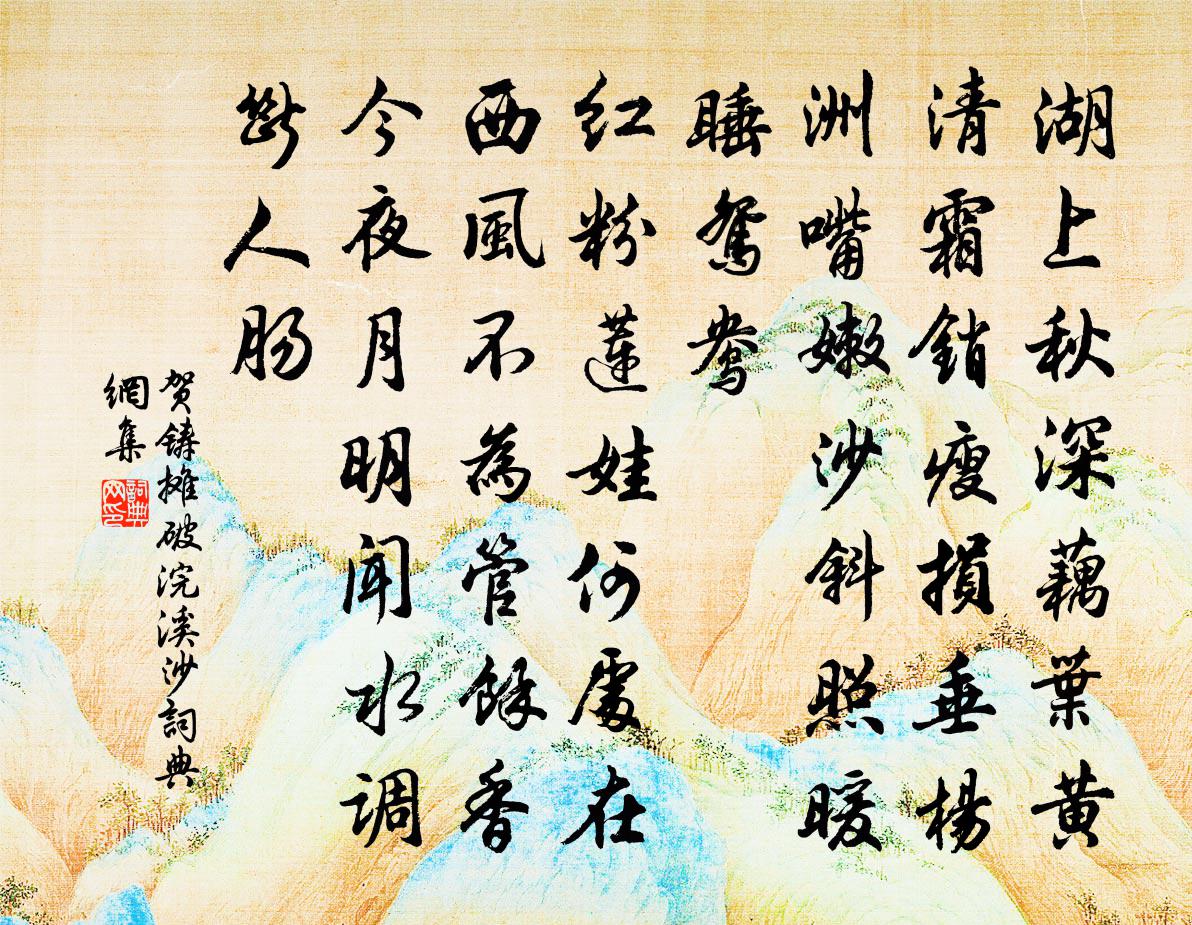 湖上秋深藕葉黄
清霜銷瘦損垂楊
洲嘴嫩沙斜照暖
睡鴛鴦
红粉蓮娃何處在
西風不為管餘香
今夜月明闻水调
斷人肠
賀鑄攤破浣溪沙詞典
網集
詞典
网印